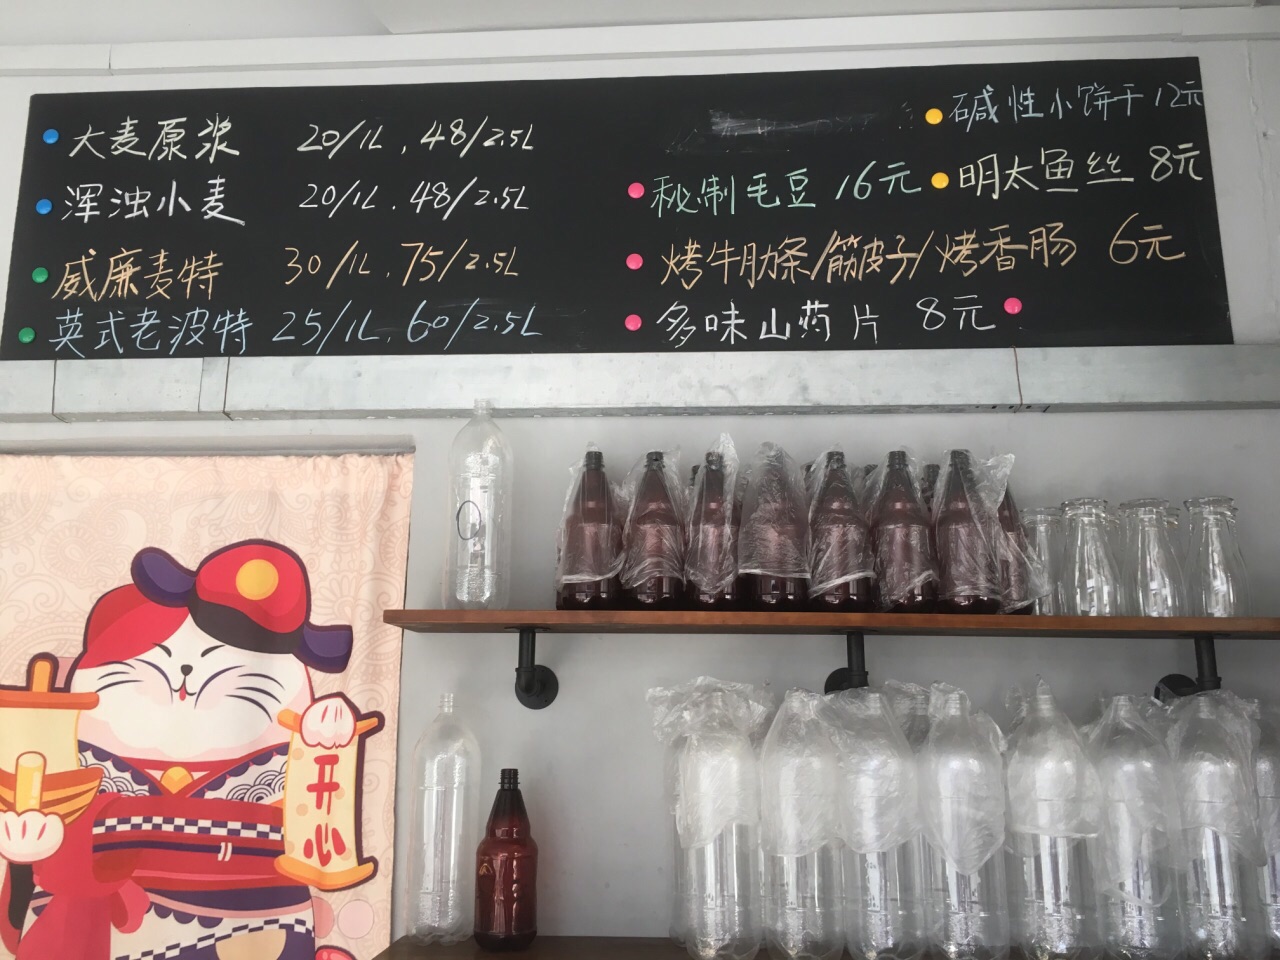 大麦原浆 20/1L, 48/2.5L
浑浊小麦 20/1L, 48/2.5L
威廉麦特 30/1L, 75/2.5L
英式老波特 25/1L, 60/2.5L
碱性小饼干 12元
秘制毛豆 16元 明太鱼丝 8元
烤牛肋条/筋皮子/烤香肠 6元
多味山药片 8元
开心